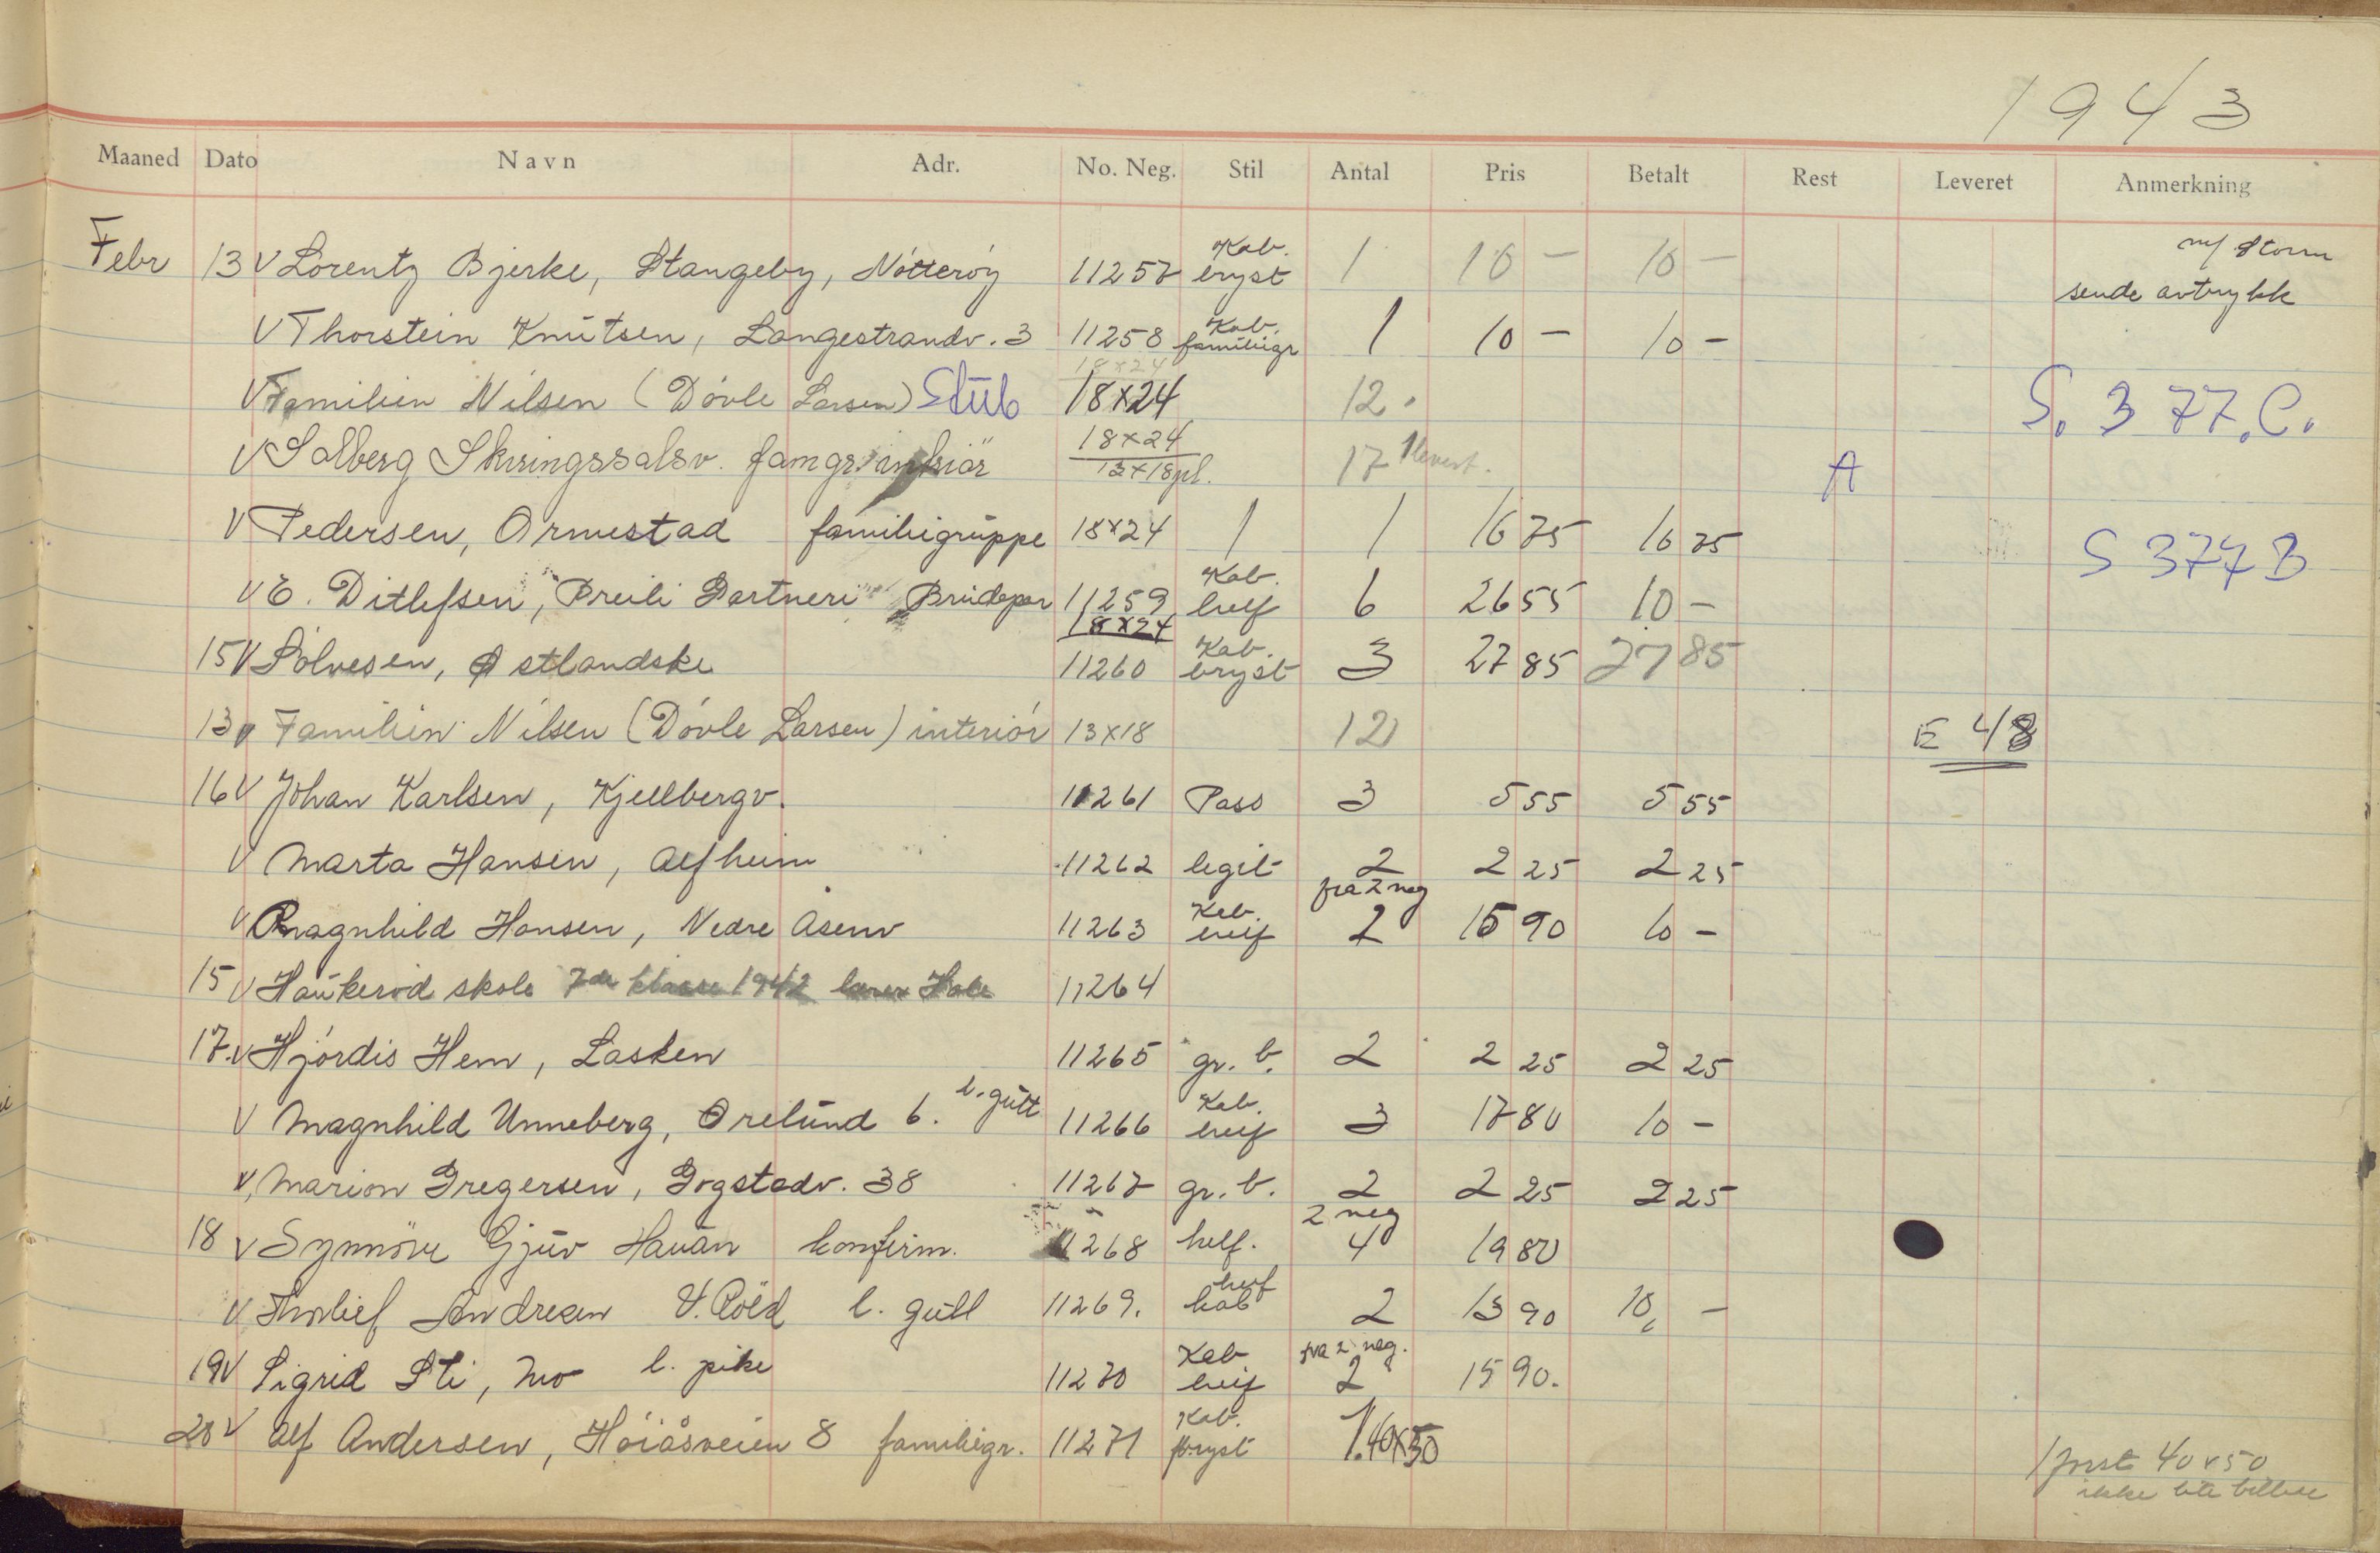 1943
Maaned Dato Navn Adr. No. Neg. Stil Antal Pris Betalt Rest Leveret Anmerkning
Febr 13 V Lorentz Bjerke, Stangeby, Nötteröy 11257 Kab. bryst 1 10 - 10 - m/ Storm
sende avtrykk
V Thorstein Knutsen, Langestrandv. 3 11258 Kab. familiegr 1 10 - 10 -
18x24
V Familien Nilsen (Dövle Larsen) Stub 18x24 12. S. 377.C.
V Solberg Skiringssalsv. famgr. intriör 18x24 13x18 pl. 17 1 levert. A
V Pedersen, Ormestad familiegruppe 18x24 1 1 16 75 16 75 S 377 B
V E. Ditlefsen, Preili Gartneri Brudepar 11259 18x24 Kab. helf 6 26 55 10 -
15 V Sölvesen, Østlandske 11260 Kab. bryst 3 27 85 27 85
13 V Familien Nilsen (Dövle Larsen) interiör 13x18 12 E 48
16 V Johan Karlsen, Kjellbergv. 11261 Pass 3 5 55 5 55
V Marta Hansen, Alfheim 11262 legit 2 2 25 2 25
V Ragnhild Hansen, Nedre Åsenv 11263 Kab. fra 2 neg 2 15 90 10 -
15 V Haukeröd skole 7de klasse 1942 11264
17. V Hjördis Hem, Lasken 11265 gr. b. 2 2 25 2 25
V Magnhild Unneberg, Orelund 6. l. gutt 11266 Kab. 3 17 80 10 -
V Marion Gregersen, Gogstadv. 38 11267 gr. b. 2 2 25 2 25
18 V Synnöve Gjuv Hauan konfirm. 11268 helf. 2 neg 4 19 80
V Thorleif Andresen V. Röed l. gutt 11269. kab 2 13 90 10, -
19 V Sigrid Sti, Mo l. pike 11270 Kab fra 2 neg. 2 15 90.
20 V Alf Andersen, Höiåsveien 8 familiegr. 11271 Kab. bryst 1. 40x50 1 prist 40x50
ikke